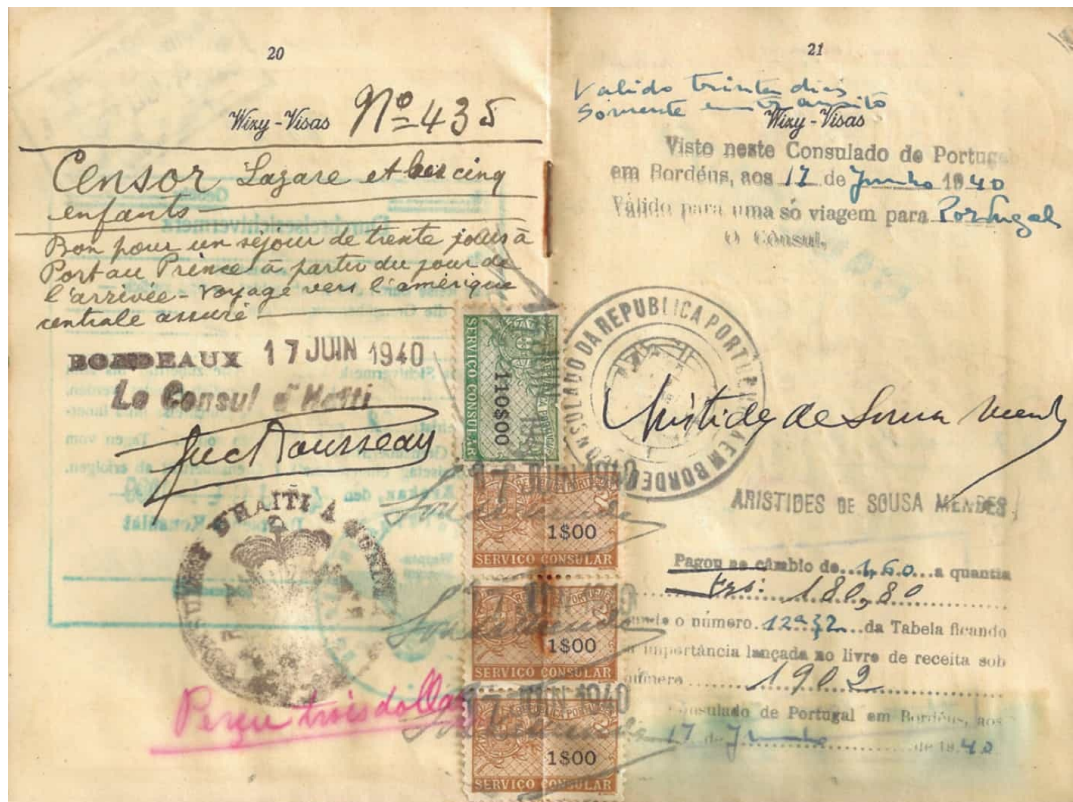 20
Wizy-Visas Nº 435
Censor Lazare et ses cinq
enfants
Bon pour un séjour de trente jours à
Port au Prince à partir du jour de
l'arrivée - voyage vers l'amérique
centrale assuré
BORDEAUX 17 JUIN 1940
Le Consul d'Haiti
D'HAITI À
Perçu trois dollars
SERVIÇO CONSULAR
110$00
17 JUN 1940
1$00
SERVIÇO CONSULAR
17 JUN 1940
1$00
SERVIÇO CONSULAR
17 JUN 1940
1$00
SERVIÇO CONSULAR
21
Valido trinta dias
Somente em transito
Wizy-Visas
Visto neste Consulado de Portugal
em Bordéus, aos 17 de Junho 1940
Válido para uma só viagem para Portugal
O Cônsul,
CONSULADO DA REPUBLICA PORTUGUEZA EM BORDEUS
Aristides de Sousa Mendes
ARISTIDES DE SOUSA MENDES
Pagou ao câmbio de 1,60 a quantia
180,80
o número da Tabela ficando
a importância lançada no livro de receita sob
número 1902
Consulado de Portugal em Bordéus, aos
17 de Junho de 1940